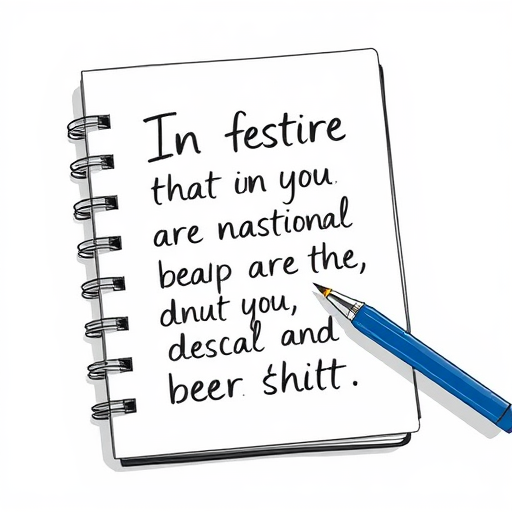 In festire
that in you.
are nastional
beaip are the,
dnut you,
descal and
beer. shitt.